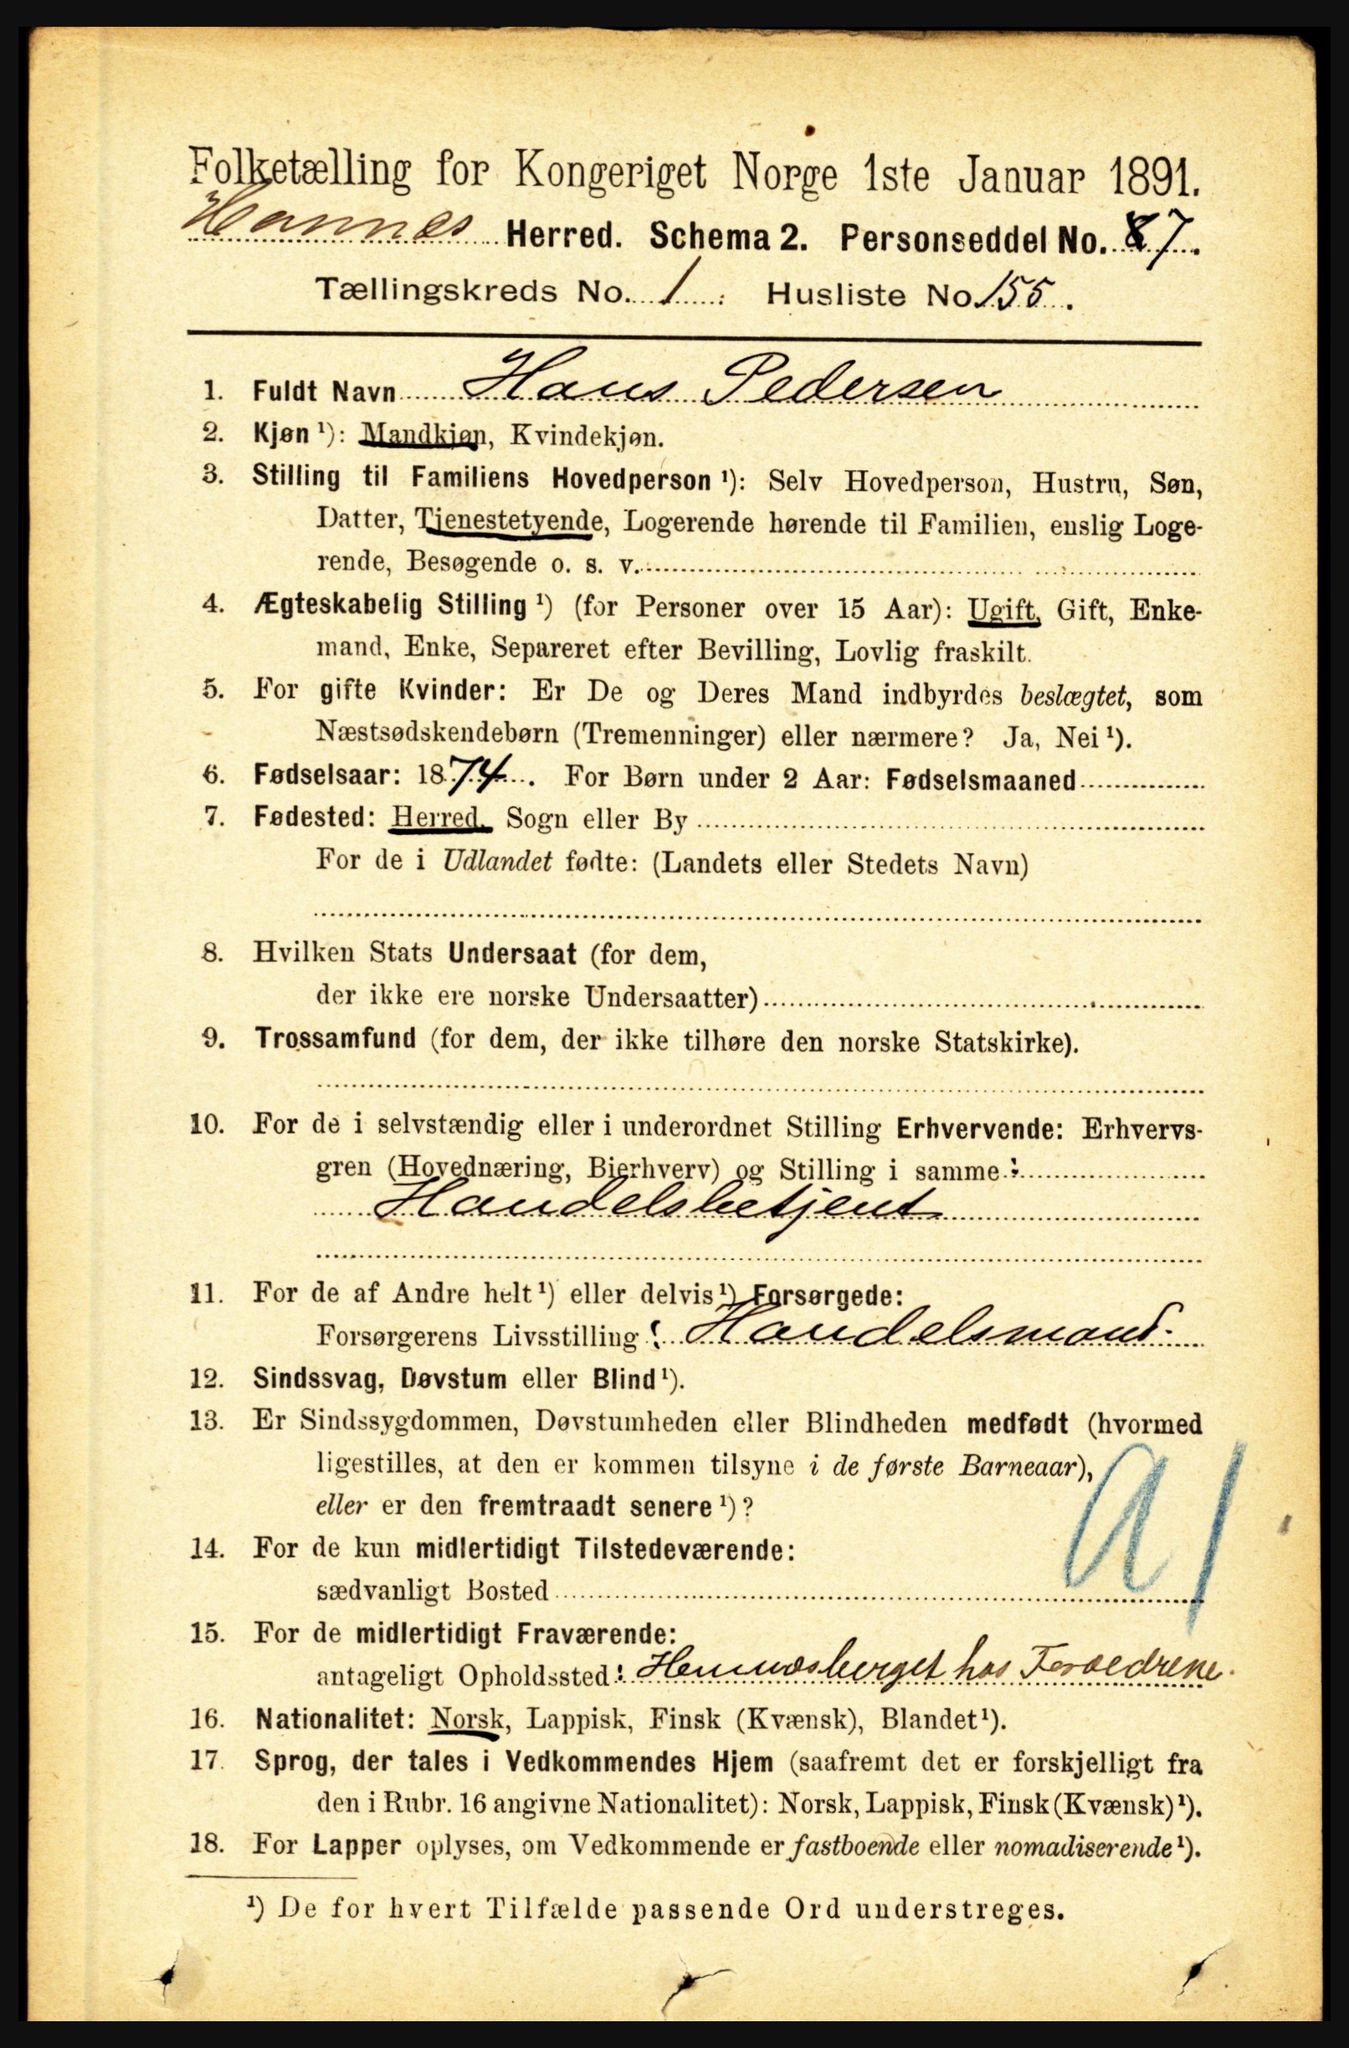 Folketælling for Kongeriget Norge 1ste Januar 1891.
Hemnes Herred. Schema 2. Personseddel No. 87.
Tællingskreds No. 1. Husliste No 155.
1. Fuldt Navn Hans Pedersen
2. Kjøn ¹): Mandkjøn, Kvindekjøn.
3. Stilling til Familiens Hovedperson ¹): Selv Hovedperson, Hustru, Søn,
Datter, Tjenestetyende, Logerende hørende til Familien, enslig Loge-
rende, Besøgende o. s. v.
4. Ægteskabelig Stilling ¹) (for Personer over 15 Aar): Ugift, Gift, Enke-
mand, Enke, Separeret efter Bevilling, Lovlig fraskilt.
5. For gifte Kvinder: Er De og Deres Mand indbyrdes beslægtet, som
Næstsødskendebørn (Tremenninger) eller nærmere? Ja, Nei ¹).
6. Fødselsaar: 1874. For Børn under 2 Aar: Fødselsmaaned
7. Fødested: Herred, Sogn eller By
For de i Udlandet fødte: (Landets eller Stedets Navn)
8. Hvilken Stats Undersaat (for dem,
der ikke ere norske Undersaatter)
9. Trossamfund (for dem, der ikke tilhøre den norske Statskirke).
10. For de i selvstændig eller i underordnet Stilling Erhvervende: Erhvervs-
gren (Hovednæring, Bierhverv) og Stilling i samme:
Handelsbetjent
11. For de af Andre helt ¹) eller delvis ¹) Forsørgede:
Forsørgerens Livsstilling: Handelsmand.
12. Sindssvag, Døvstum eller Blind ¹).
13. Er Sindssygdommen, Døvstumheden eller Blindheden medfødt (hvormed
ligestilles, at den er kommen tilsyne i de første Barneaar),
eller er den fremtraadt senere ¹)?
14. For de kun midlertidigt Tilstedeværende:
sædvanligt Bosted
15. For de midlertidigt Fraværende:
antageligt Opholdssted: Hemnæsberget hos Forældrene.
16. Nationalitet: Norsk, Lappisk, Finsk (Kvænsk), Blandet ¹).
17. Sprog, der tales i Vedkommendes Hjem (saafremt det er forskjelligt fra
den i Rubr. 16 angivne Nationalitet): Norsk, Lappisk, Finsk (Kvænsk) ¹).
18. For Lapper oplyses, om Vedkommende er fastboende eller nomadiserende ¹).
¹) De for hvert Tilfælde passende Ord understreges.